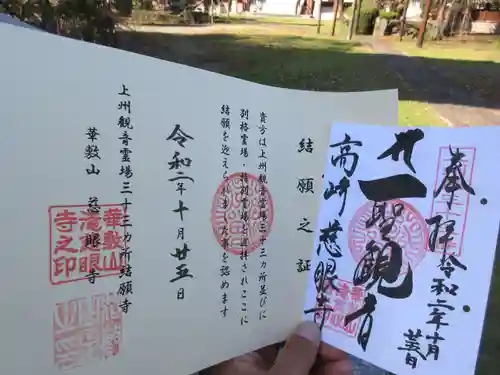 奉拝
令和二年十月
廿一
聖観音
高崎慈眼寺
結願之証
貴方は上州観音霊場三十三カ所並びに
別格霊場・特別霊場を巡拝されここに
結願を迎えられました事を認めます
令和二年十月廿五日
上州観音霊場三十三カ所結願寺
華敷山 慈眼寺
華敷山
滝慈眼
寺之印